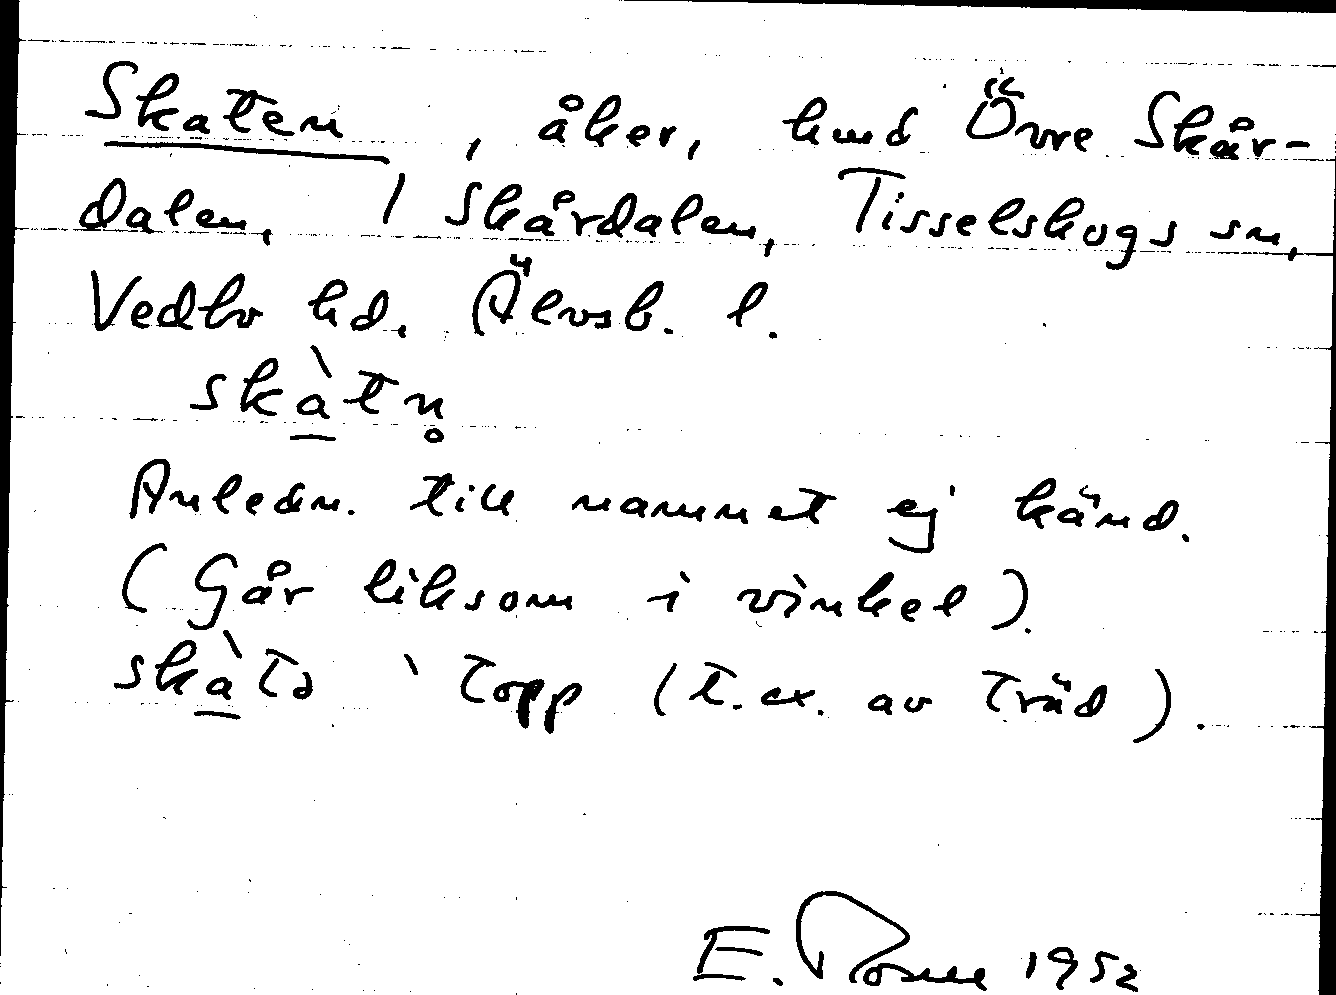 Skaten, åker, hmd Övre Skår-
dalen, 1 Skårdalen, Tisselskogs sn,
Vedbo hd. Älvsb. l.
skàtn̥
Anledn. till namnet ej känd.
(Går liksom i vinkel).
skàtə ` topp (t.ex. av träd).
E. 1952